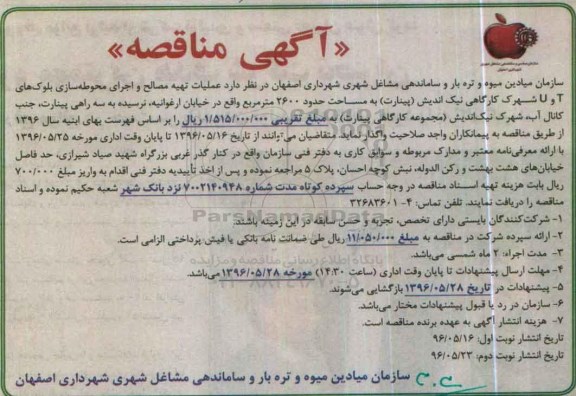 «آگهی مناقصه»
سازمان میادین میوه و تره بار و ساماندهی مشاغل شهری شهرداری اصفهان در نظر دارد عملیات تهیه مصالح و اجرای محوطه‌سازی بلوک‌های
T و U شهرک کارگاهی نیک اندیش (پینارت) به مساحت حدود ۲۶۰۰ مترمربع واقع در خیابان ارغوانیه، نرسیده به سه راهی پینارت، جنب
کانال آب، شهرک نیک‌اندیش (مجموعه کارگاهی پینارت) به مبلغ تقریبی ۱/۵۱۵/۰۰۰/۰۰۰ ریال را بر اساس فهرست بهای ابنیه سال ۱۳۹۶
از طریق مناقصه به پیمانکاران واجد صلاحیت واگذار نماید. متقاضیان می‌توانند از تاریخ ۱۳۹۶/۰۵/۱۶ تا پایان وقت اداری مورخه ۱۳۹۶/۰۵/۲۵
با ارائه معرفی‌نامه معتبر و مدارک مربوطه و سوابق کاری به دفتر فنی سازمان واقع در کنار گذر غربی بزرگراه شهید صیاد شیرازی، حد فاصل
خیابان‌های هشت بهشت و رکن الدوله، نبش کوچه احسان، پلاک ۵ مراجعه نموده و پس از اخذ تأییدیه دفتر فنی اقدام به واریز مبلغ ۷۰۰/۰۰۰
ریال بابت هزینه تهیه اسناد مناقصه در وجه حساب سپرده کوتاه مدت شماره ۷۰۰۲۱۴۰۹۴۸ نزد بانک شهر شعبه حکیم نموده و اسناد
مناقصه را دریافت نمایند. تلفن تماس: ۴- ۳۲۶۸۳۶۰۱
۱- شرکت‌کنندگان بایستی دارای تخصص، تجربه و حسن سابقه در این زمینه باشند.
۲- ارائه سپرده شرکت در مناقصه به مبلغ ۱۱/۰۵۰/۰۰۰ ریال طی ضمانت نامه بانکی یا فیش پرداختی الزامی است.
۳- مدت اجراء: ۲ ماه شمسی می‌باشد.
۴- مهلت ارسال پیشنهادات تا پایان وقت اداری (ساعت ۱۴:۳۰) مورخه ۱۳۹۶/۰۵/۲۸ می‌باشد.
۵- پیشنهادات در تاریخ ۱۳۹۶/۰۵/۲۸ بازگشایی می‌شوند.
۶- سازمان در رد یا قبول پیشنهادات مختار می‌باشد.
۷- هزینه انتشار آگهی به عهده برنده مناقصه است.
تاریخ انتشار نوبت اول: ۹۶/۰۵/۱۶
تاریخ انتشار نوبت دوم: ۹۶/۰۵/۲۳
سازمان میادین میوه و تره بار و ساماندهی مشاغل شهری شهرداری اصفهان
ParsNamadData